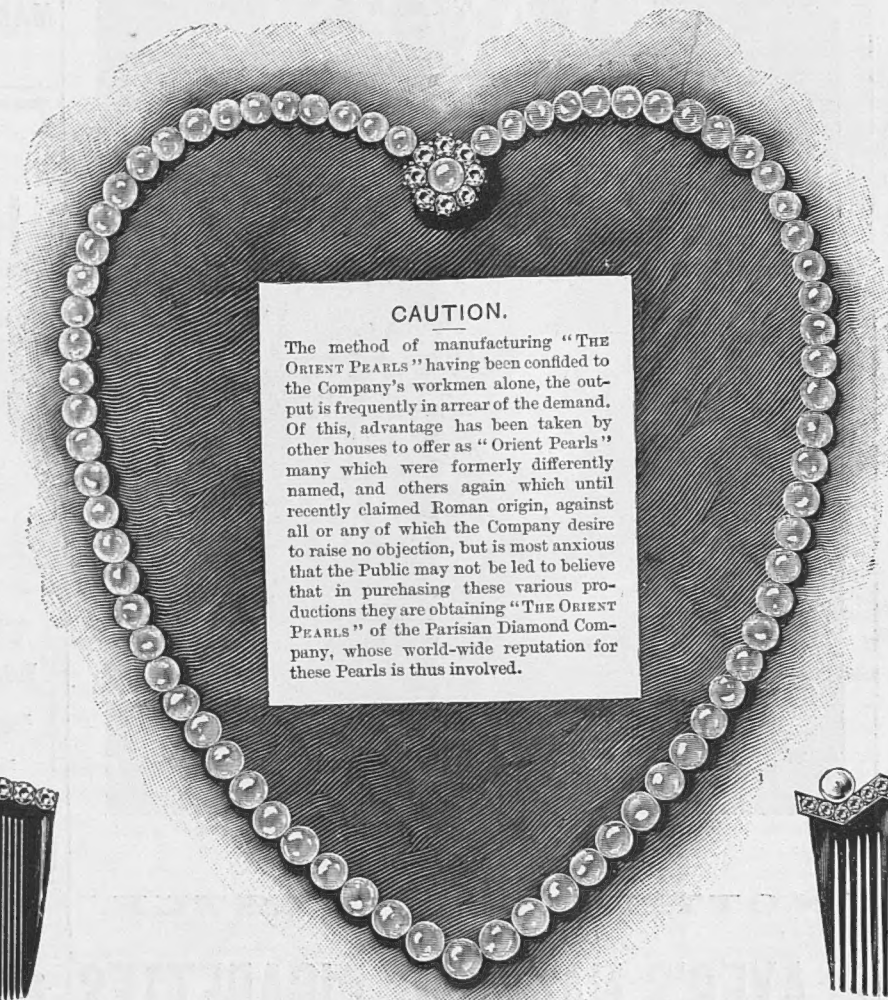 CAUTION.
The method of manufacturing "THE
ORIENT PEARLS" having been confided to
the Company's workmen alone, the out-
put is frequently in arrear of the demand.
Of this, advantage has been taken by
other houses to offer as "Orient Pearls"
many which were formerly differently
named, and others again which until
recently claimed Roman origin, against
all or any of which the Company desire
to raise no objection, but is most anxious
that the Public may not be led to believe
that in purchasing these various pro-
ductions they are obtaining "THE ORIENT
PEARLS" of the Parisian Diamond Com-
pany, whose world-wide reputation for
these Pearls is thus involved.